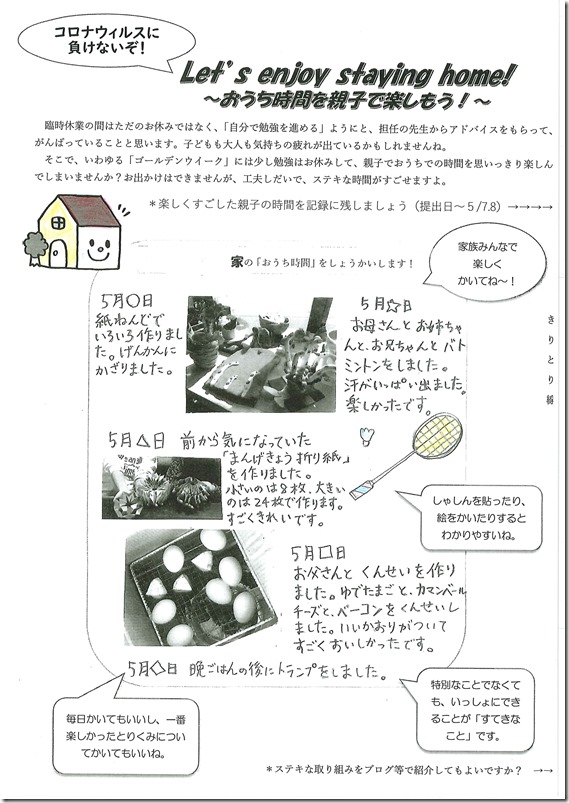 コロナウィルスに
負けないぞ!
Let's enjoy staying home!
~おうち時間を親子で楽しもう!~
臨時休業の間はただのお休みではなく、「自分で勉強を進める」ようにと、担任の先生からアドバイスをもらって、
がんばっていることと思います。子どもも大人も気持ちの疲れが出ているかもしれませんね。
そこで、いわゆる「ゴールデンウイーク」には少し勉強はお休みして、親子でおうちでの時間を思いっきり楽しん
でしまいませんか?お出かけはできませんが、工夫しだいで、ステキな時間がすごせますよ。
*楽しくすごした親子の時間を記録に残しましょう(提出日~5/7.8)→→→→
家の「おうち時間」をしょうかいします!
家族みんなで
楽しく
かいてね~!
きりとり線
5月○日
紙ねんどで
いろいろ作りまし
た。げんかんに
かざりました。
5月☆日
お母さんとお姉ちゃ
んと、お兄ちゃんとバト
ミントンをしました。
汗がいっぱい出ました。
楽しかったです。
5月△日 前から気になっていた
「まんげきょう折り紙」
を作りました。
小さいのは8枚、大きい
のは24枚で作ります。
すごくきれいです。
しゃしんを貼ったり、
絵をかいたりすると
わかりやすいね。
5月□日
お父さんと くんせいを作り
ました。ゆでたまごと、カマンベール
チーズと、ベーコンをくんせいし
ました。いいかおりがついて
すごくおいしかったです。
5月◇日 晩ごはんの後にトランプをしました。
毎日かいてもいいし、一番
楽しかったとりくみについ
てかいてもいいね。
特別なことでなくて
も、いっしょにでき
ることが「すてきな
こと」です。
*ステキな取り組みをブログ等で紹介してもよいですか? →→